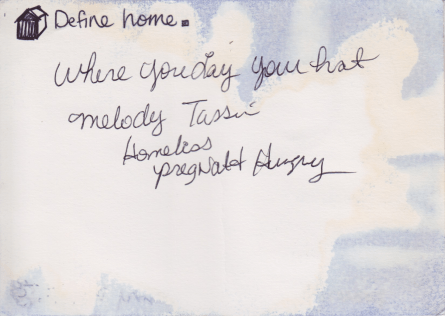 Define home.
Where you lay your hat
melody Tassin
Homeless
pregnant Hungry